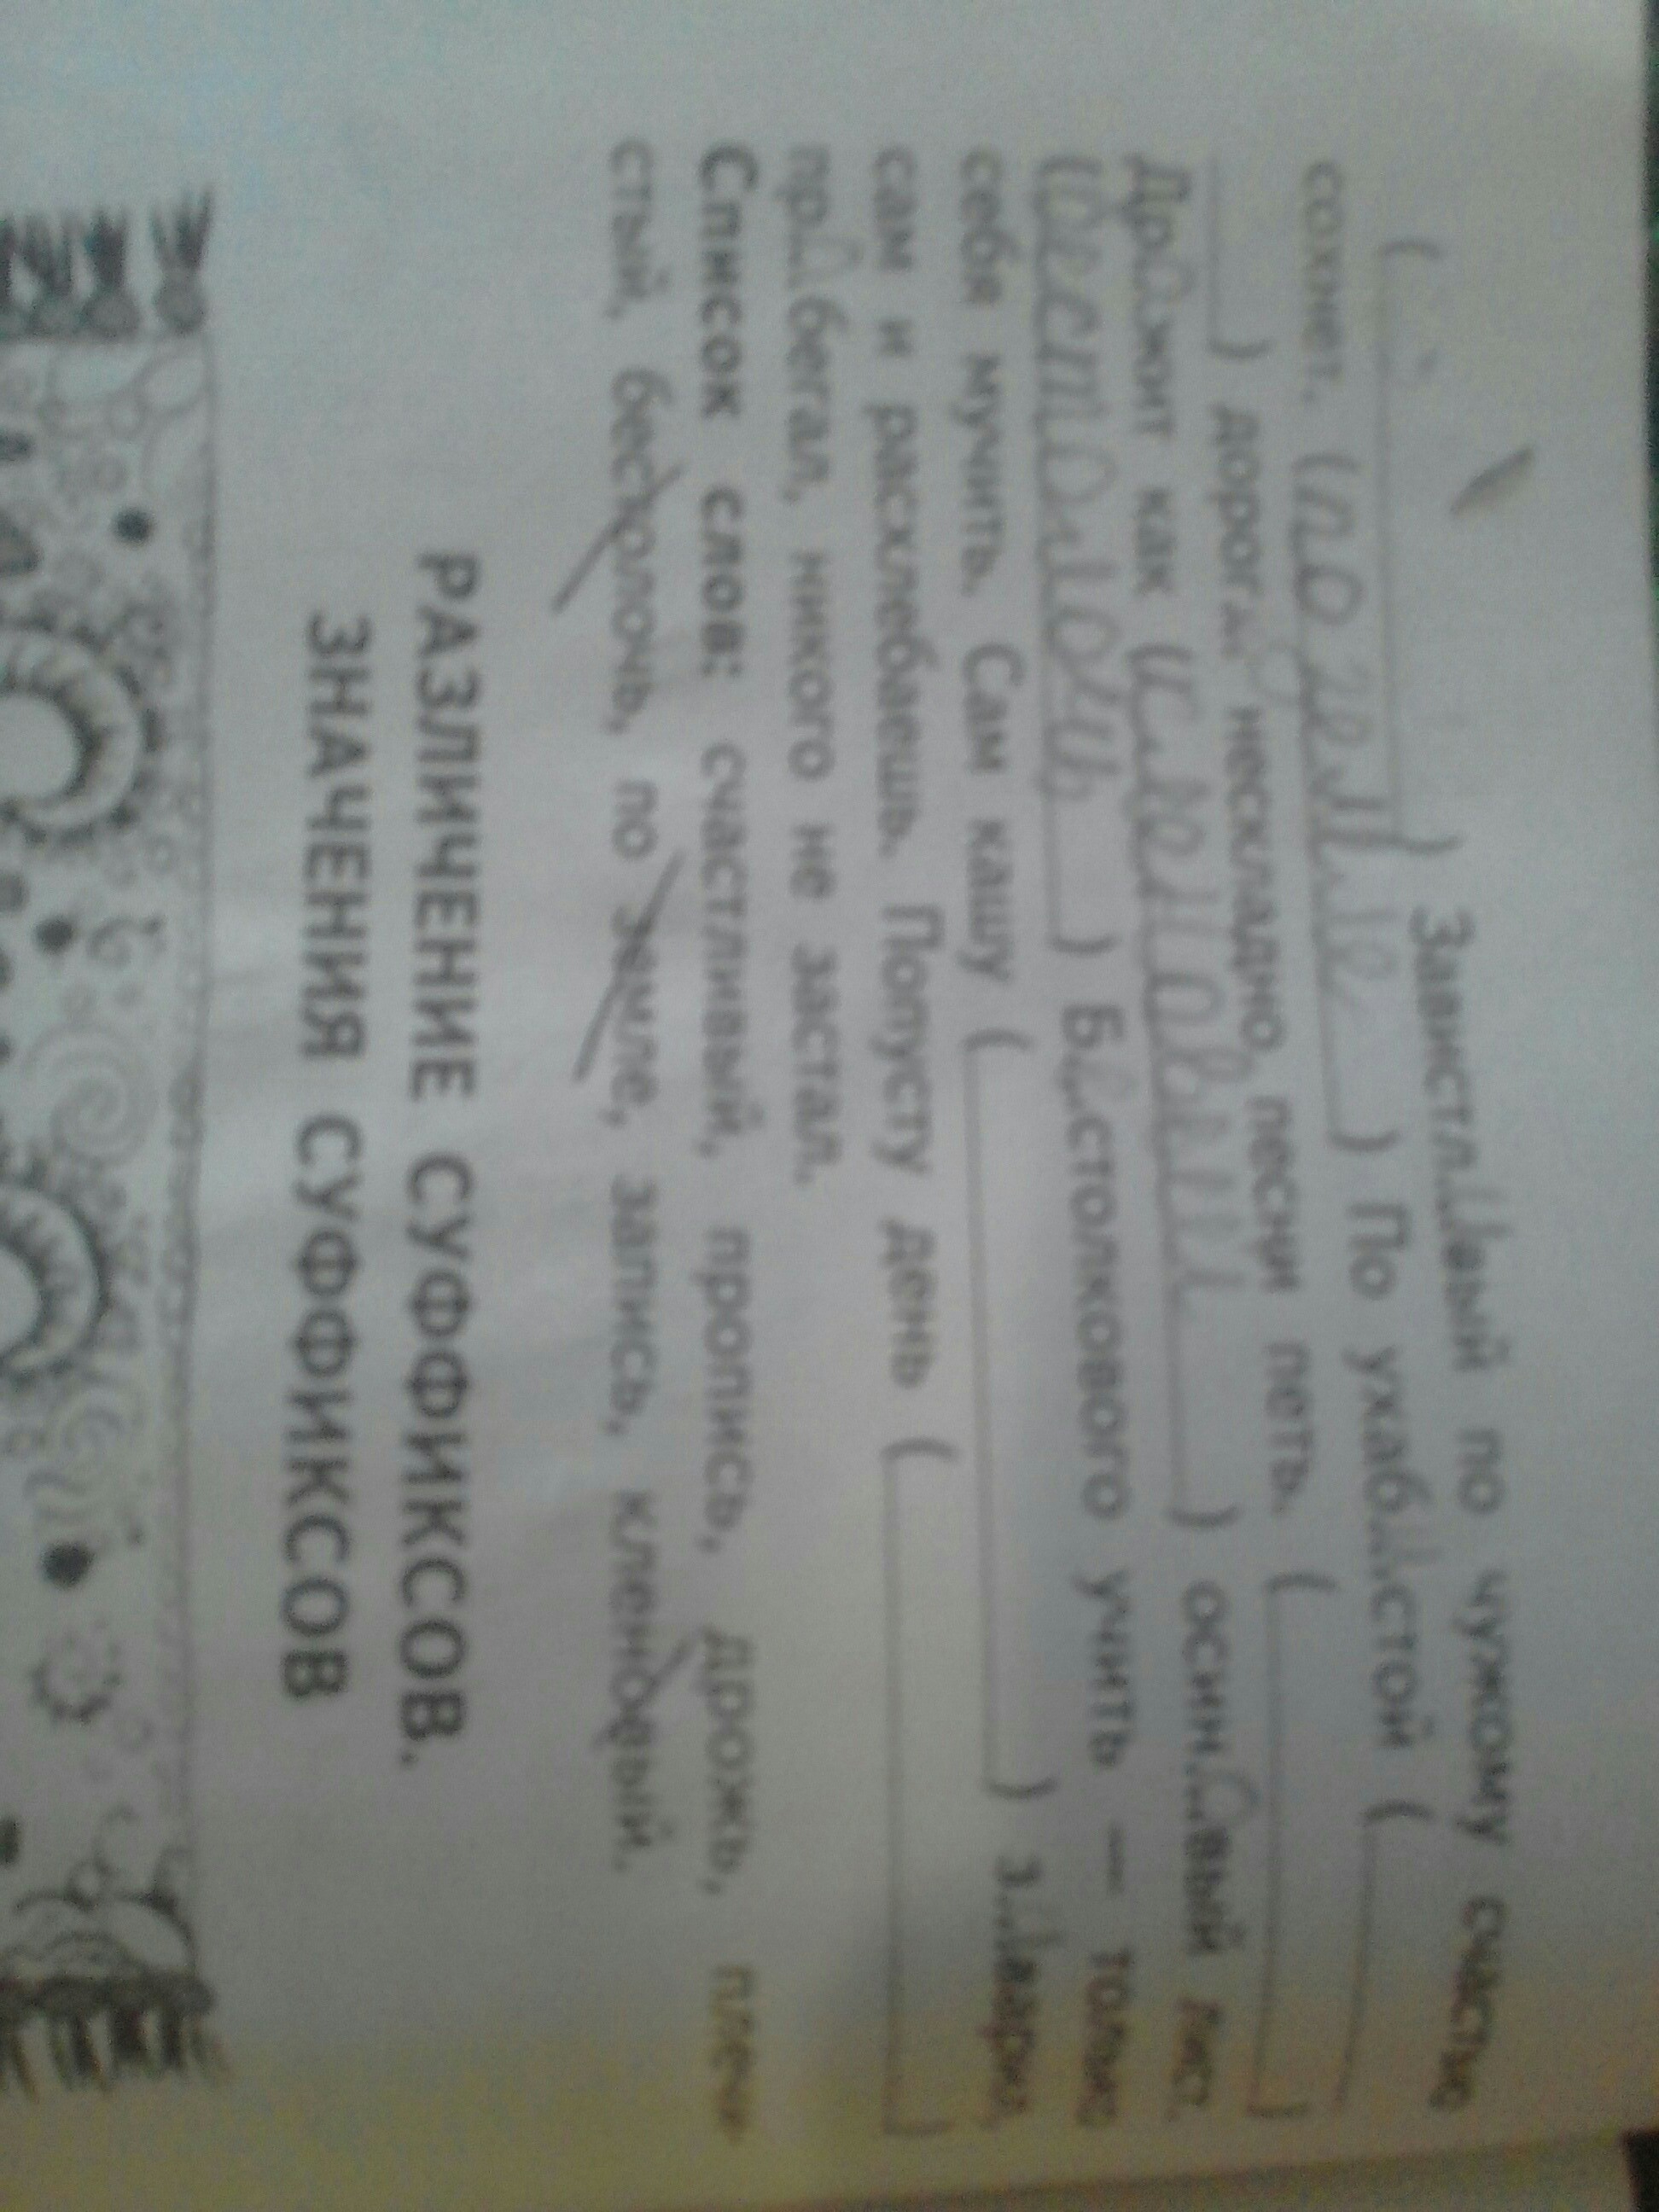 ( ) Завистливый по чужому счастью
сохнет. (по земле ) По ухабистой (
) дорог нескладно песни петь. ( )
Дрожит как кленовый ) осиновый лист.
(бестолочь ) Бестолкового учить — только
себя мучить. Сам кашу ( ) заварил,
сам и расхлебаешь. Попусту день ( )
пробегал, никого не застал.
Список слов: счастливый, пропись, дрожь, плечи-
стый, бестолочь, по земле, запись, кленовый.
РАЗЛИЧЕНИЕ СУФФИКСОВ.
ЗНАЧЕНИЯ СУФФИКСОВ